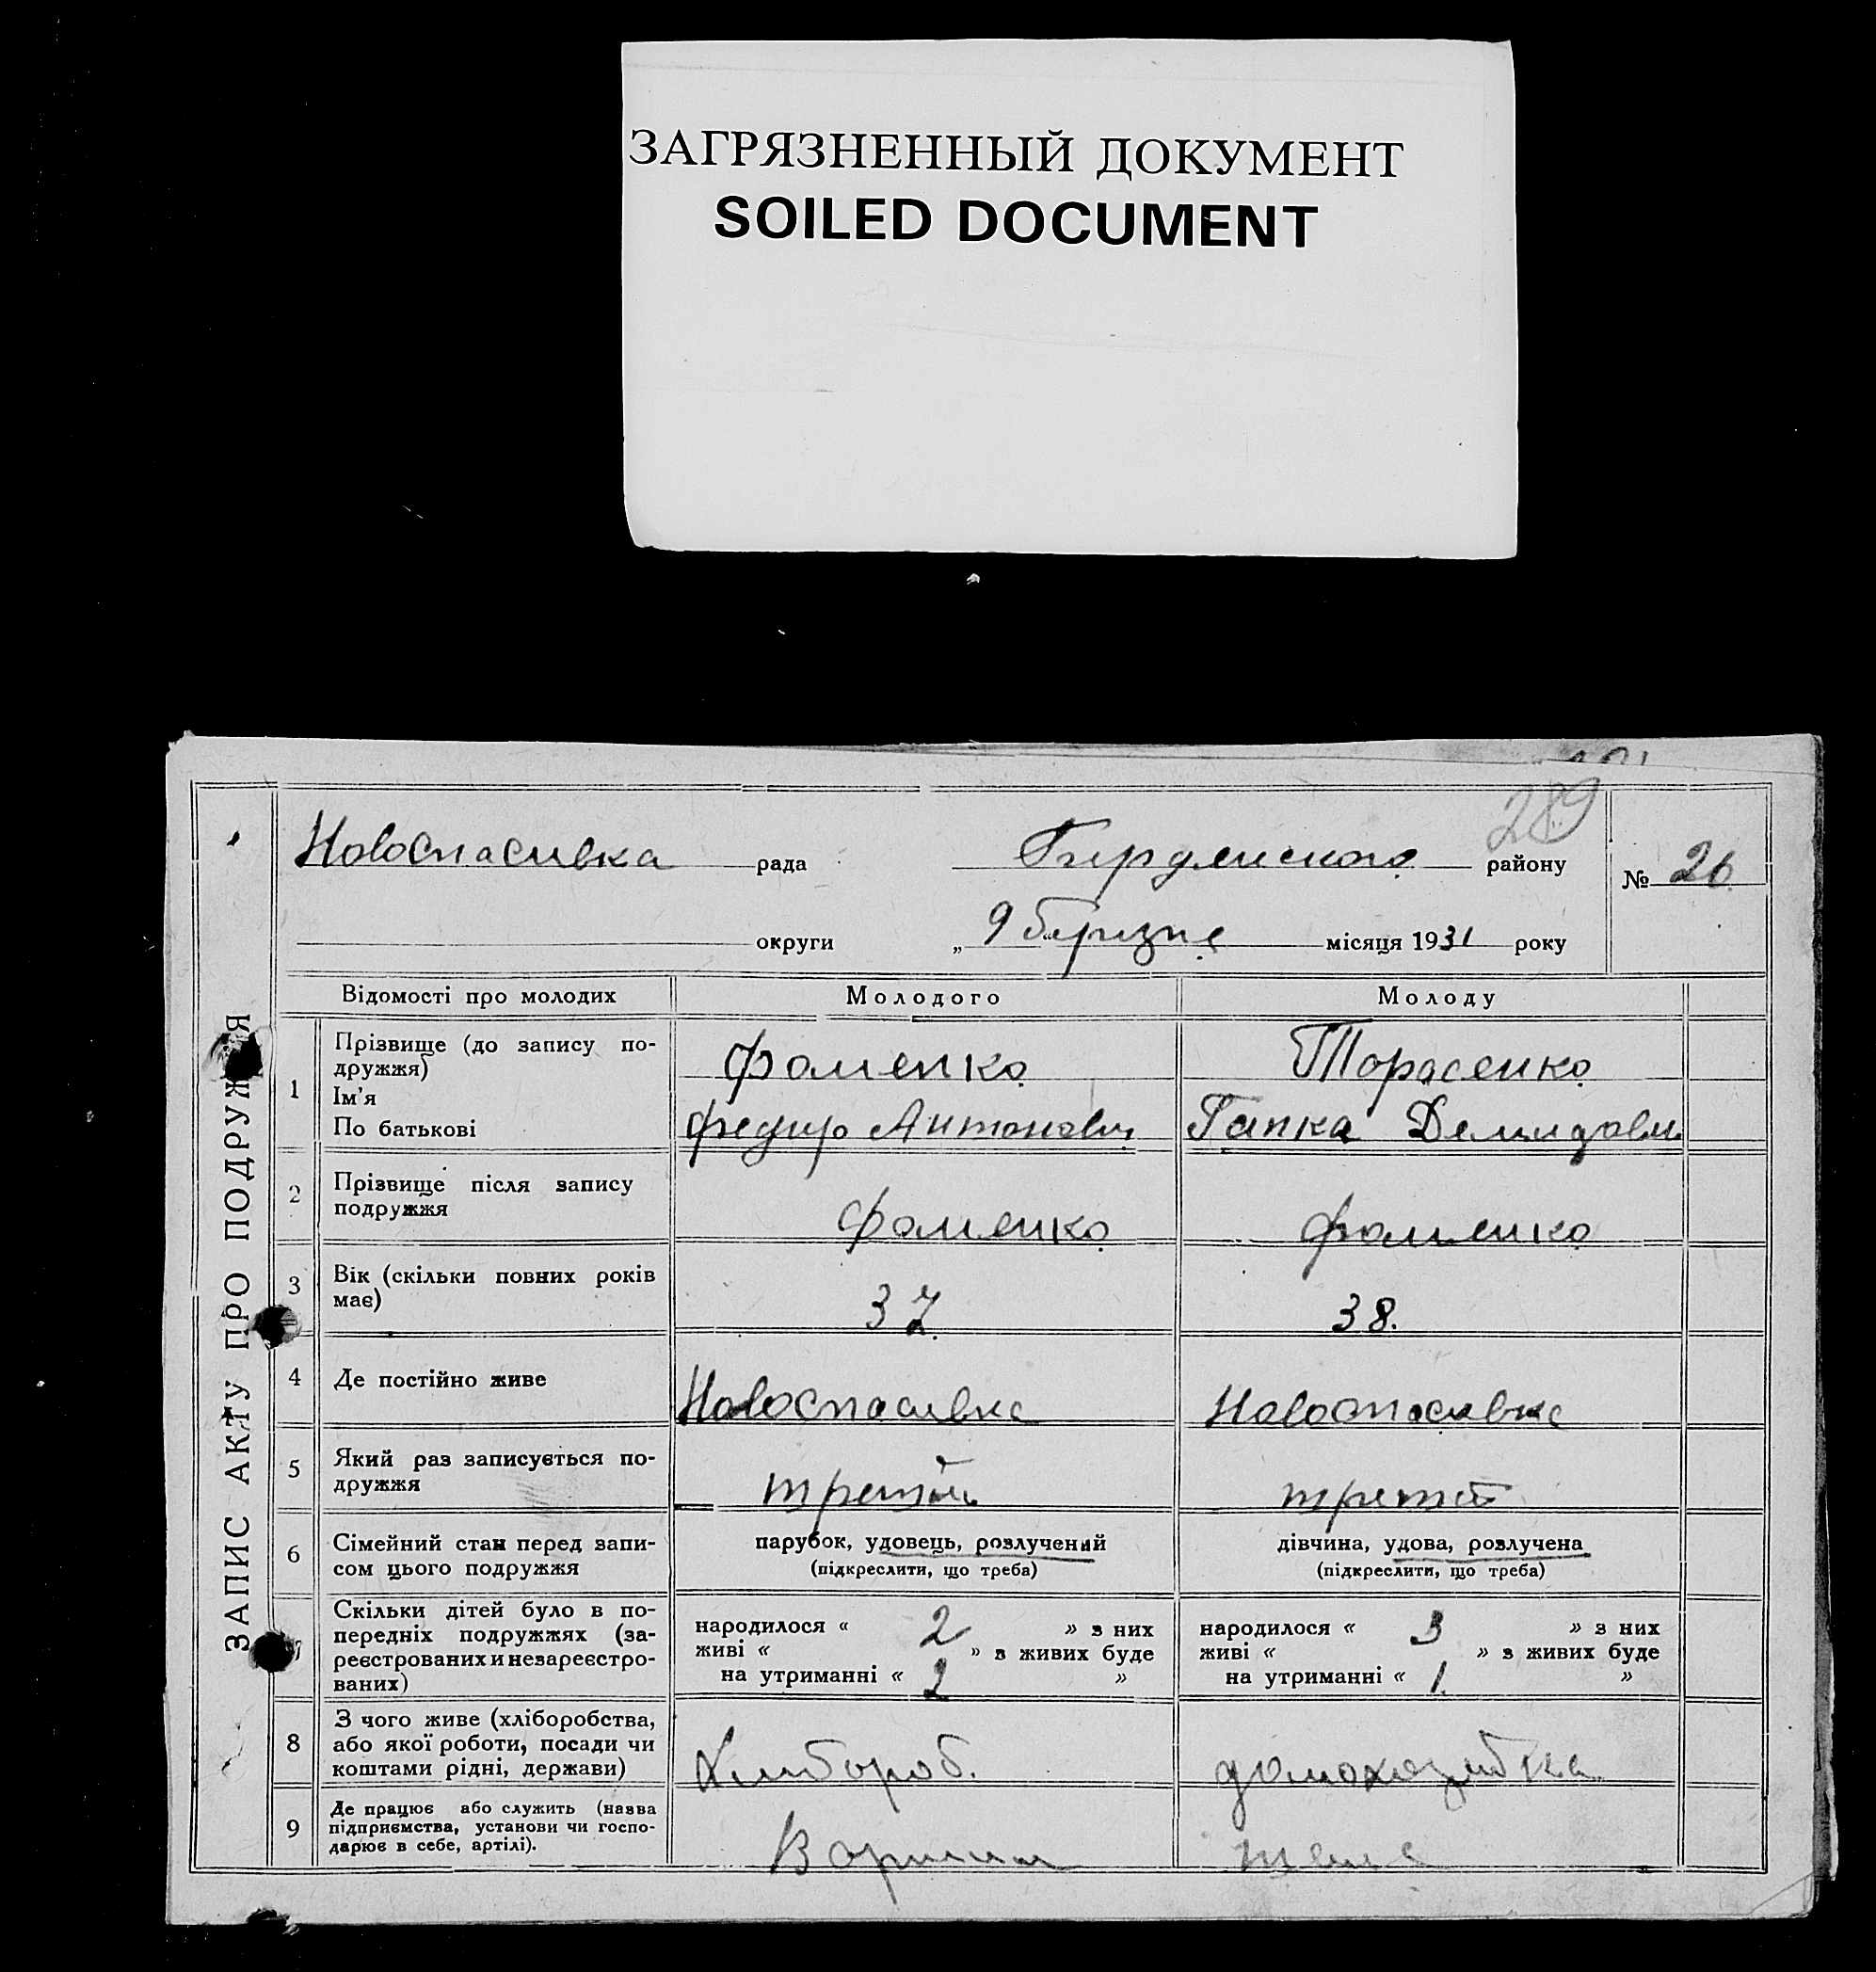 ЗАГРЯЗНЕННЫЙ ДОКУМЕНТ
SOILED DOCUMENT
289
Новоспасивка рада Бирдянского району № 26
округи „ 9 березня місяця 1931 року
ЗАПИС АКТУ ПРО ПОДРУЖЖЯ
Відомості про молодих Молодого Молоду
1 Прізвище (до запису по-
дружжя) Фоменко Тарасенко
Ім'я
По батькові Федир Антонович Гапка Демидовн
2 Прізвище після запису
подружжя Фоменко Фоменко
3 Вік (скільки повних років
має) 37 38.
4 Де постійно живе Новоспасивка Новоспасивка
5 Який раз записується по-
дружжя третій третій
6 Сімейний стан перед запи-
сом цього подружжя
парубок, удовець, розлучений
(підкреслити, що треба)
дівчина, удова, розлучена
(підкреслити, що треба)
7 Скільки дітей було в по-
передніх подружжях (за-
реєстрованих и незареєстро-
ваних)
народилося « 2 » з них
живі « » з живих буде
на утриманні « 2 »
народилося « 3 » з них
живі « » з живих буде
на утриманні « 1. »
8 З чого живе (хліборобства,
або якої роботи, посади чи
коштами рідні, держави)
Хлибороб. домохозяйка
9 Де працює або служить (назва
підприємства, установи чи госпо-
дарює в себе, артілі).
В артили теж